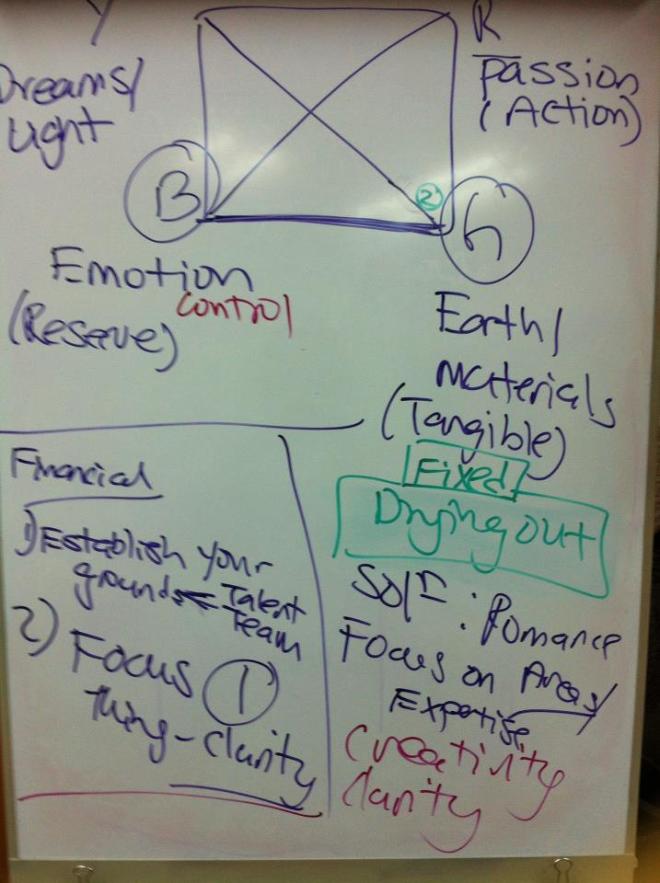 Y
R
Dreams/
Light
Passion
(Action)
B
2
G
Emotion
control
(Reserve)
Earth/
materials
(Tangible)
Fixed
Drying out
Financial
1) Establish your
grounds Talent
Team
2) Focus 1
thing-clarity
Sol : Romance
Focus on Areas/
Expertise
Creativity
Clarity